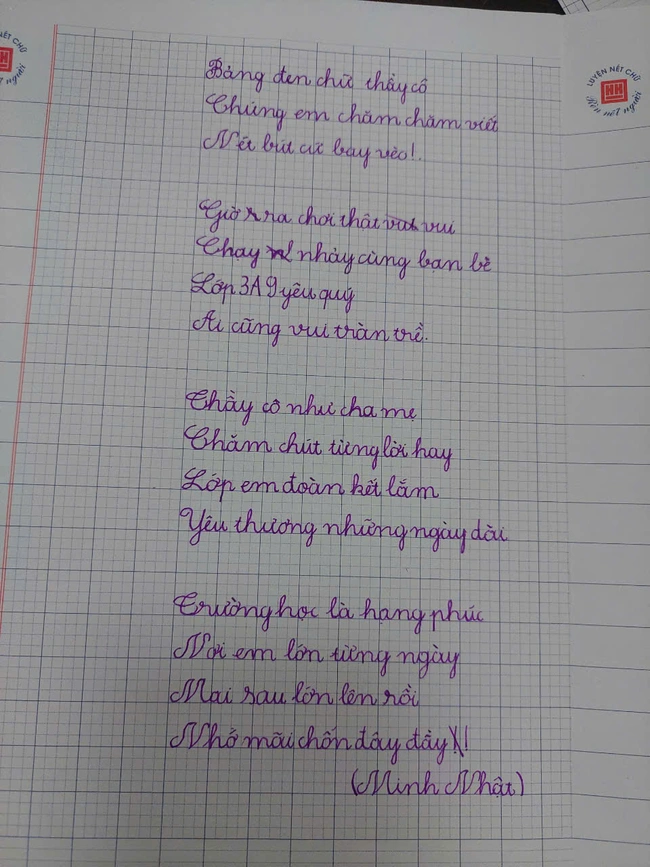 LUYỆN NẾT CHỮ
HH
Rèn nết người
Bảng đen chữ thầy cô
Chúng em chăm chăm viết
Nét bút cứ bay vèo!.
Giờ ra chơi thật vui
Chạy nhảy cùng bạn bè
Lớp 3A9 yêu quý
Ai cũng vui tràn trề.
Thầy cô như cha mẹ
Chăm chút từng lời hay
Lớp em đoàn kết lắm
Yêu thương những ngày dài
Trường học là hạng phúc
Nơi em lớn từng ngày
Mai sau lớn lên rồi
Nhớ mãi chốn đây đầy!
(Minh Nhật)